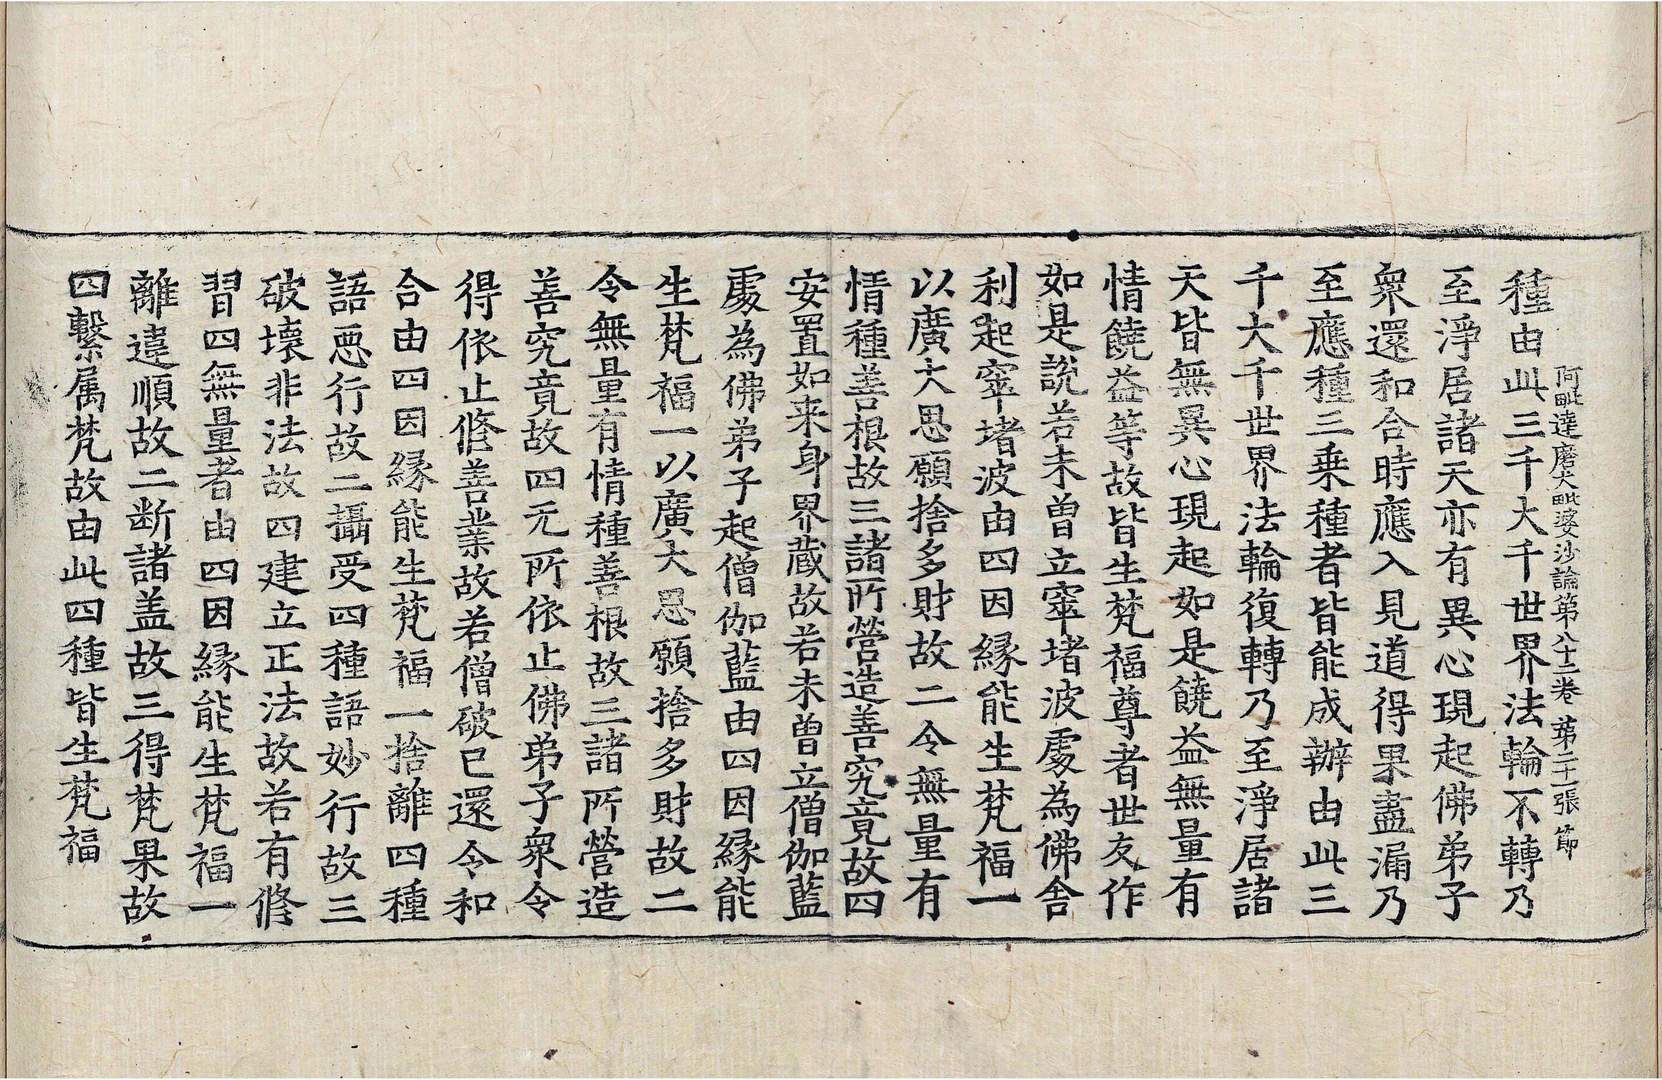 阿毗達磨大毗婆沙論第八十二卷 苐二十一張 節
種由此三千大千世界法輪不轉乃
至淨居諸天亦有異心現起佛弟子
衆還和合時應入見道得果盡漏乃
至應種三乗種者皆能成辦由此三
千大千世界法輪復轉乃至淨居諸
天皆無異心現起如是饒益無量有
情饒益等故皆生梵福尊者世友作
如是說若未曽立窣堵波處為佛舎
利起窣堵波由四因緣能生梵福一
以廣大思願捨多財故二令無量有
情種善根故三諸所營造善究竟故四
安置如来身界蔵故若未曽立僧伽藍
處為佛弟子起僧伽藍由四因緣能
生梵福一以廣大思願捨多財故二
令無量有情種善根故三諸所營造
善究竟故四元所依止佛弟子衆令
得依止修善業故若僧破已還令和
合由四因緣能生梵福一捨離四種
語惡行故二攝受四種語妙行故三
破壞非法故四建立正法故若有修
習四無量者由四因緣能生梵福一
離違順故二断諸盖故三得梵果故
四繫属梵故由此四種皆生梵福